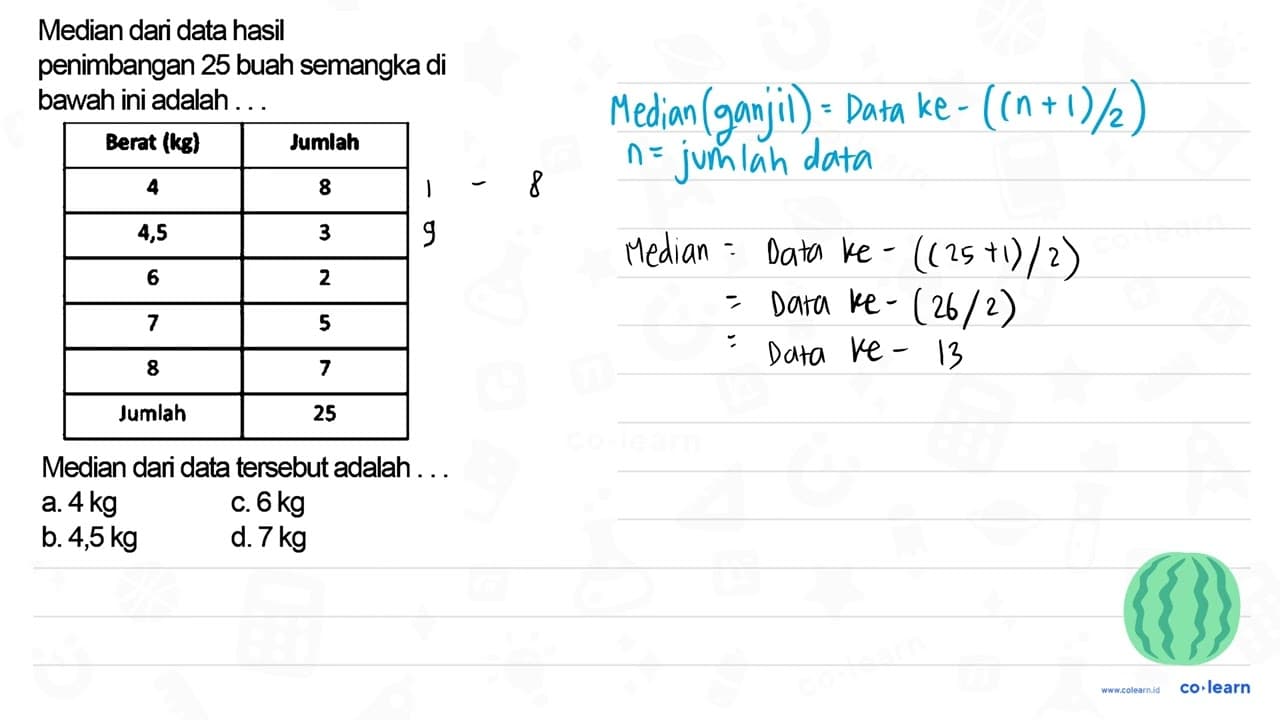 Median dari data hasil
penimbangan 25 buah semangka di
bawah ini adalah . . .
Berat (kg) Jumlah
4 8 1 - 8
4,5 3 9
6 2
7 5
8 7
Jumlah 25
Median dari data tersebut adalah . . .
a. 4 kg c. 6 kg
b. 4,5 kg d. 7 kg
Median (ganjil) = Data ke - ((n + 1)/2)
n = jumlah data
Median = Data ke - ((25 + 1)/2)
= Data ke - (26/2)
= Data ke - 13
co-learn
www.colearn.id co•learn